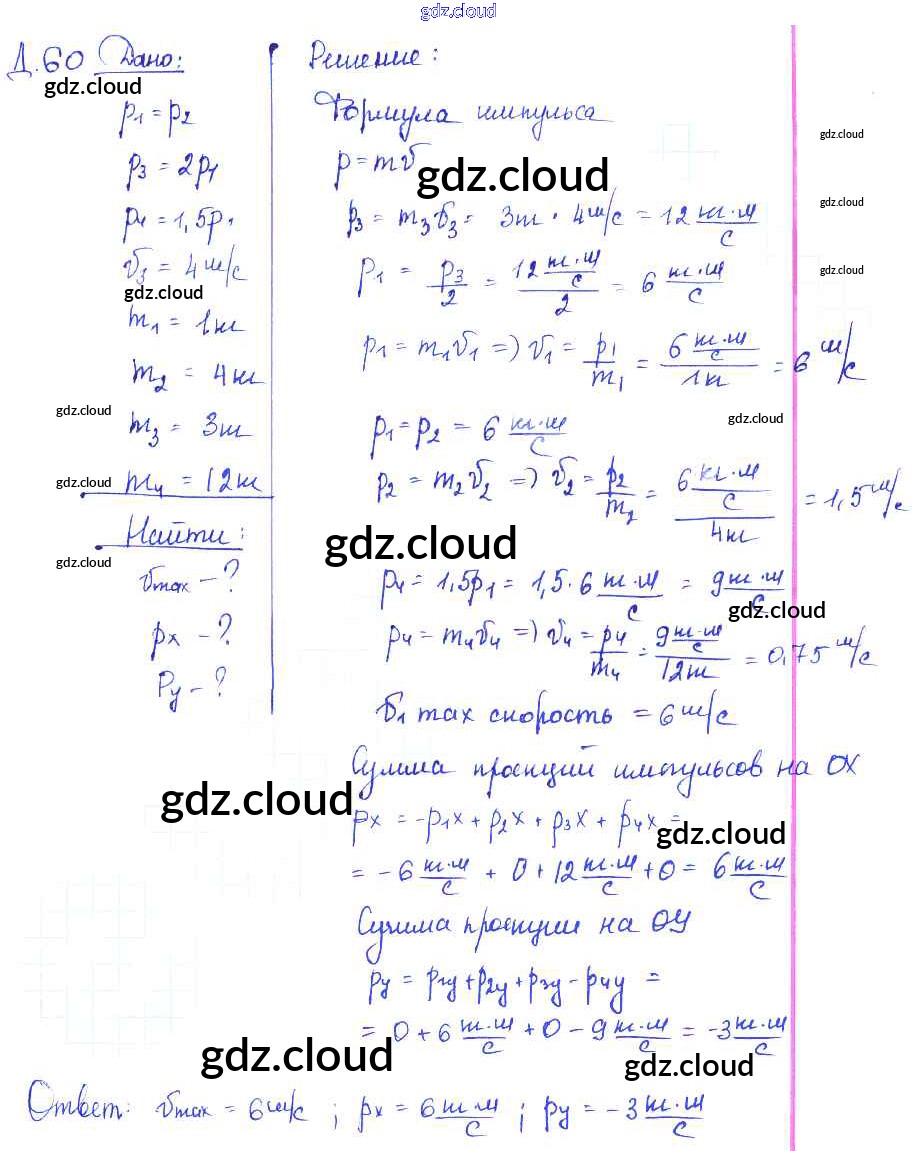 gdz.cloud
Д.60 Дано:
gdz.cloud
p₁ = p₂
p₃ = 2p₁
p₄ = 1,5p₁
v₃ = 4 м/с
gdz.cloud
m₁ = 1кг
m₂ = 4кг
gdz.cloud
m₃ = 3кг
gdz.cloud
m₄ = 12кг
Найти:
gdz.cloud
vmax - ?
px - ?
Py - ?
Решение:
Формула импульса
gdz.cloud
p = mv
gdz.cloud
gdz.cloud
p₃ = m₃v₃ = 3кг · 4м/с = 12 кг·м/с
gdz.cloud
p₁ = p₃/2 = 12 кг·м/с / 2 = 6 кг·м/с
p₁ = m₁v₁ =) v₁ = p₁/m₁ = 6 кг·м/с / 1кг = 6 м/с
gdz.cloud
p₁ = p₂ = 6 кг·м/с
p₂ = m₂v₂ =) v₂ = p₂/m₂ = 6 кг·м/с / 4кг = 1,5 м/с
gdz.cloud
p₄ = 1,5p₁ = 1,5 · 6 кг·м/с = 9 кг·м/с
gdz.cloud
p₄ = m₄v₄ =) v₄ = p₄/m₄ = 9 кг·м/с / 12кг = 0,75 м/с
v₁ max скорость = 6 м/с
Сумма проекций импульсов на OX
gdz.cloud
px = -p₁x + p₂x + p₃x + p₄x =
gdz.cloud
= -6 кг·м/с + 0 + 12 кг·м/с + 0 = 6 кг·м/с
Сумма проекции на OY
py = p₁y + p₂y + p₃y - p₄y =
= 0 + 6 кг·м/с + 0 - 9 кг·м/с = -3 кг·м/с
gdz.cloud
gdz.cloud
Ответ: vmax = 6 м/с ; px = 6 кг·м/с ; py = -3 кг·м/с